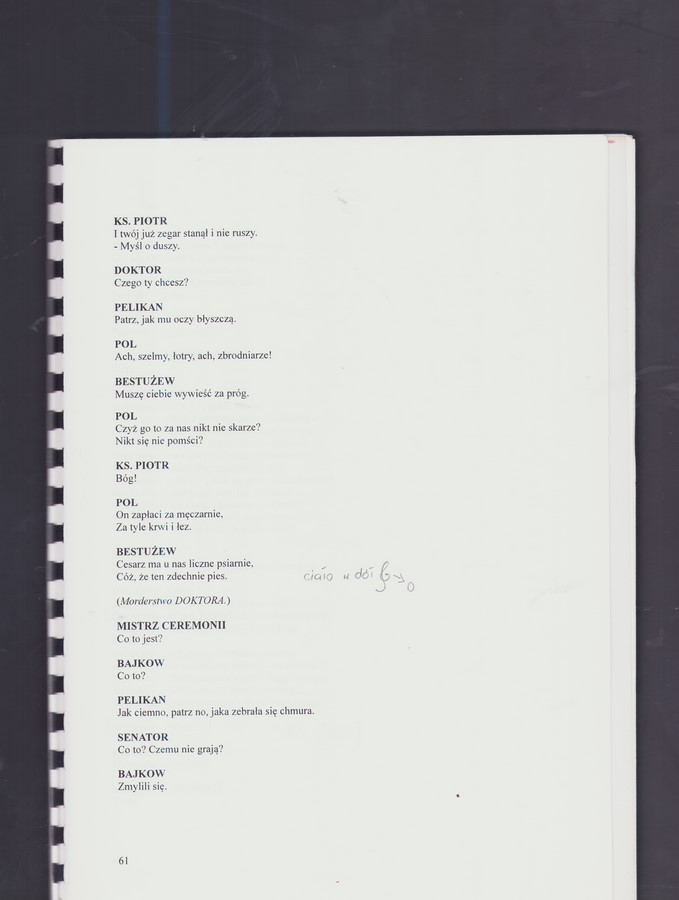 KS. PIOTR
I twój już zegar stanął i nie ruszy.
- Myśl o duszy.
DOKTOR
Czego ty chcesz?
PELIKAN
Patrz, jak mu oczy błyszczą.
POL
Ach, szelmy, łotry, ach, zbrodniarze!
BESTUŻEW
Muszę ciebie wywieść za próg.
POL
Czyż go to za nas nikt nie skarze?
Nikt się nie pomści?
KS. PIOTR
Bóg!
POL
On zapłaci za męczarnie,
Za tyle krwi i łez.
BESTUŻEW
Cesarz ma u nas liczne psiarnie,
Cóż, że ten zdechnie pies.
ciało w dół
(Morderstwo DOKTORA.)
MISTRZ CEREMONII
Co to jest?
BAJKOW
Co to?
PELIKAN
Jak ciemno, patrz no, jaka zebrała się chmura.
SENATOR
Co to? Czemu nie grają?
BAJKOW
Zmylili się.
61